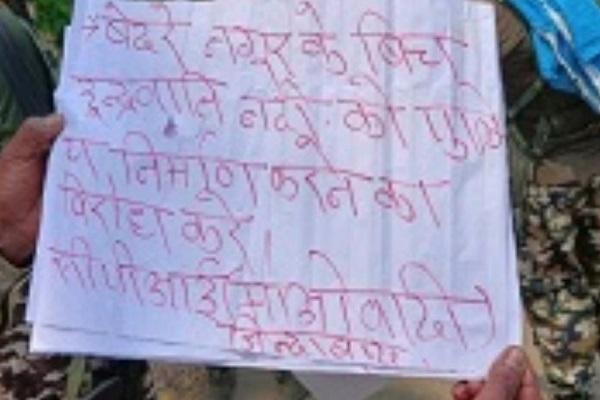 बेदरे नगुर के बिच
इन्द्रवति नदी को पुलि
या निर्माण करने का
विरोध करे।
सीपीआई माओवादी
जिन्दाबाद